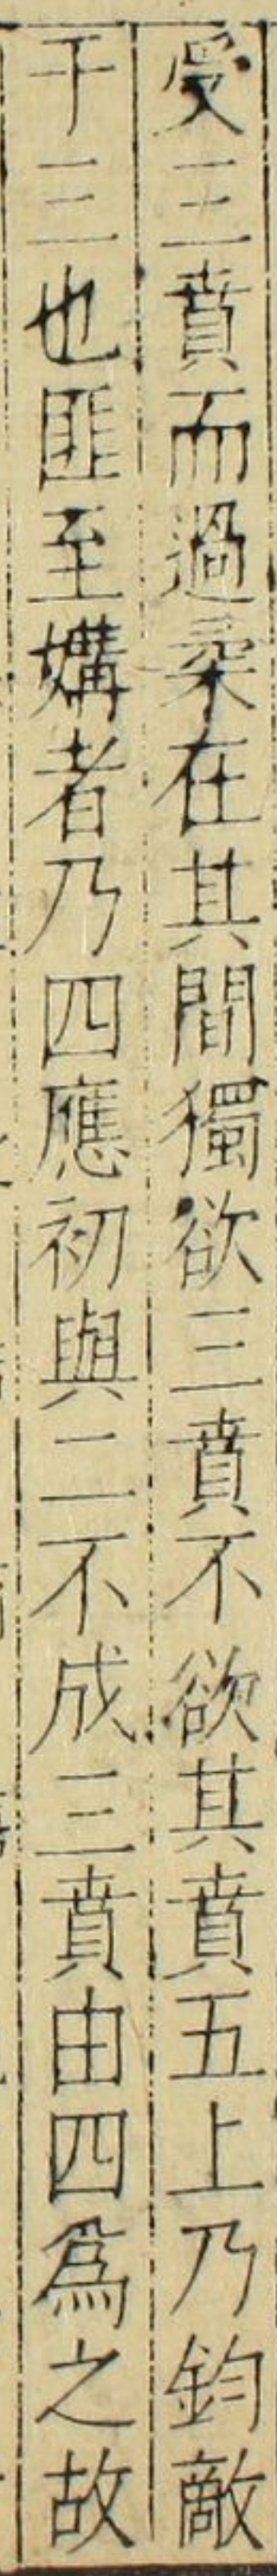 受三賁而過桒在其間獨欲三賁不欲其賁五上乃鈞敵
于三也匪至媾者乃四應初與二不成三賁由四爲之故